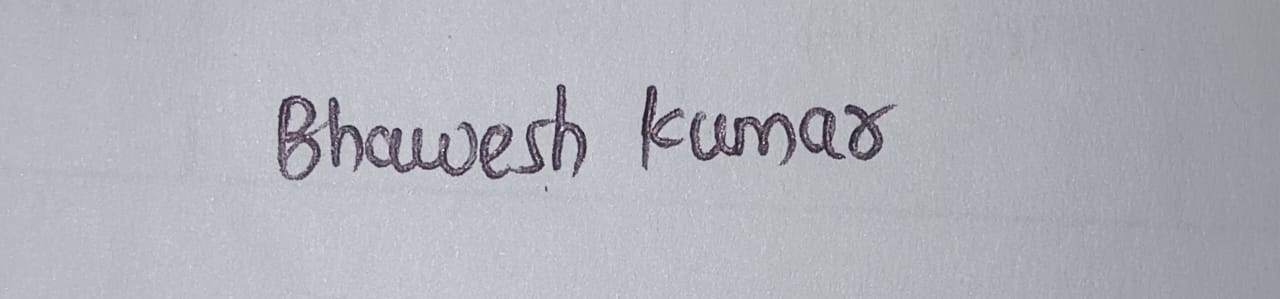 Bhawesh Kumar